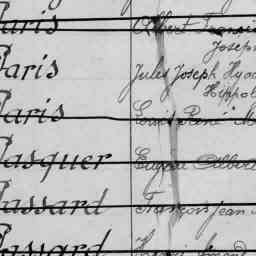 Paris Albert François
Joseph
Paris Jules Joseph Hyac
Hippol
Paris Louis René
Pasquer Eugène Albert
Passard François Jean
Passard